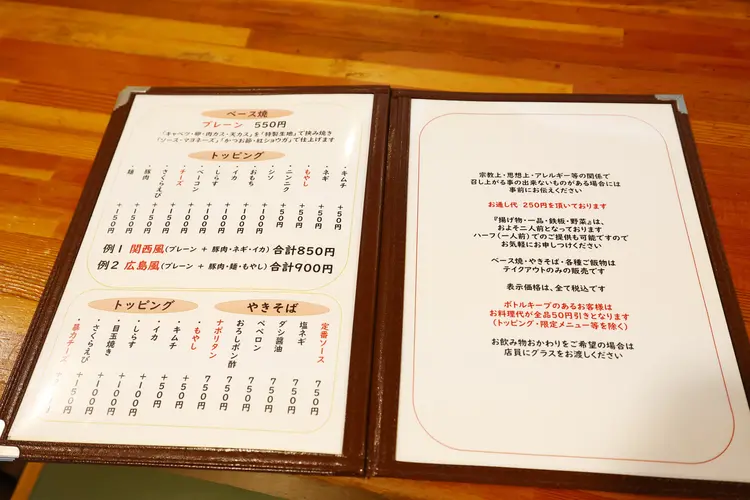 ベース焼
プレーン 550円
「キャベツ・卵・肉カス・天カス」を「特製生地」で挟み焼き
「ソース・マヨネーズ」「かつお節・紅ショウガ」で仕上げます
トッピング
・キムチ +50円
・ネギ +50円
・もやし +50円
・ニンニク +50円
・シソ +50円
・おもち +100円
・イカ +100円
・しらす +100円
・ベーコン +100円
・チーズ +100円
・さくらえび +150円
・豚肉 +150円
・麺 +150円
例1 関西風(プレーン + 豚肉・ネギ・イカ) 合計850円
例2 広島風(プレーン + 豚肉・麺・もやし) 合計900円
やきそば
定番ソース 750円
塩ネギ 750円
ダシ醤油 750円
ペペロン 750円
おろしポン酢 750円
ナポリタン 750円
トッピング
・もやし +50円
・キムチ +50円
・イカ +100円
・しらす +100円
・目玉焼き +100円
・さくらえび +150円
・暴力チーズ +150円
宗教上・思想上・アレルギー等の関係で
召し上がる事の出来ないものがある場合には
事前にお伝えください
お通し代 250円を頂いております
『揚げ物・一品・鉄板・野菜』は、
およそ二人前となっております
ハーフ(一人前)でのご提供も可能ですので
お気軽にお申しつけください
ベース焼・やきそば・各種ご飯物は
テイクアウトのみの販売です
表示価格は、全て税込です
ボトルキープのあるお客様は
お料理代が全品50円引きとなります
(トッピング・限定メニュー等を除く)
お飲み物おかわりをご希望の場合は
店員にグラスをお渡しください